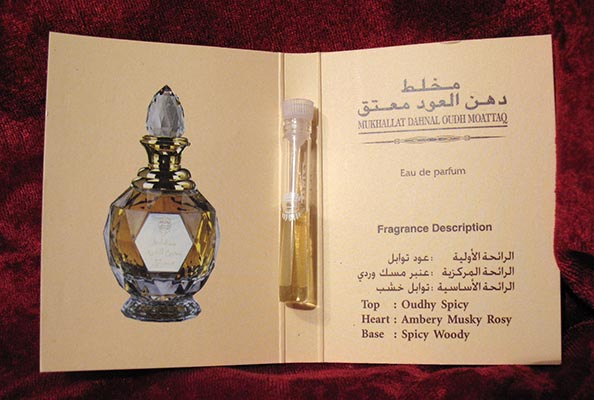 مخلط
دهن العود معتق
MUKHALLAT DAHNAL OUDH MOATTAQ
Eau de parfum
Fragrance Description
الرائحة الأولية : عود توابل
الرائحة المركزية : عنبر مسك وردي
الرائحة الأساسية : توابل خشب
Top : Oudhy Spicy
Heart : Ambery Musky Rosy
Base : Spicy Woody